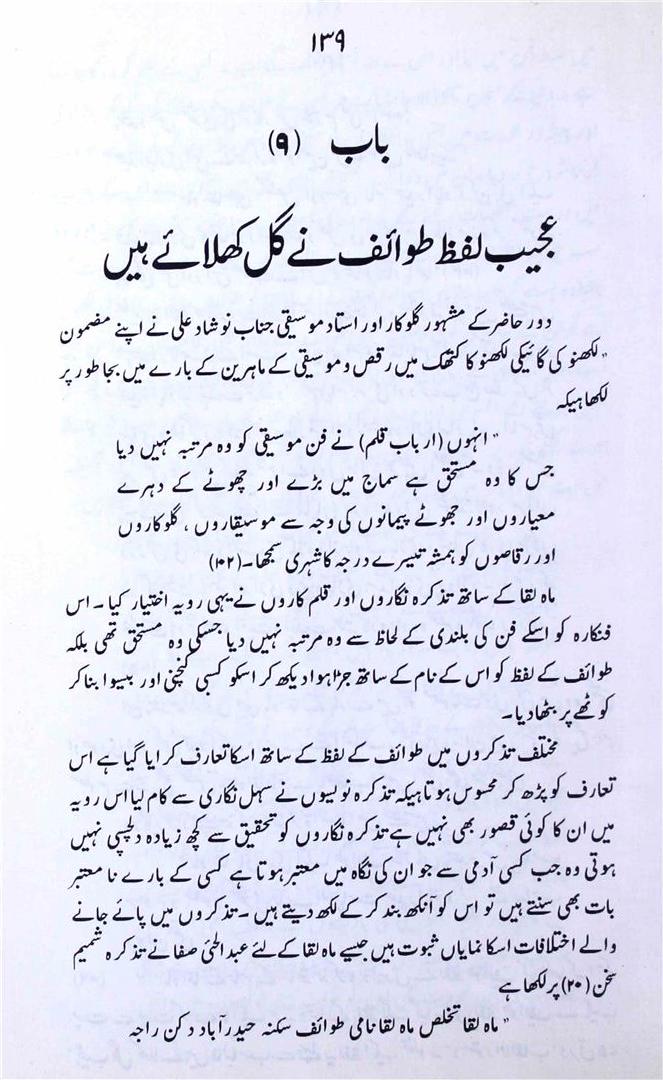 ۱۳۹
باب (۹)
عجیب لفظ طوائف نے گل کھلائے ہیں
دور حاضر کے مشہور گلوکار اور استاد موسیقی جناب نوشاد علی نے اپنے مضمون
"لکھنو کی گائیکی لکھنو کا کتھک میں رقص و موسیقی کے ماہرین کے بارے میں بجا طور پر
لکھا ہیکہ
"انہوں (ارباب قلم) نے فن موسیقی کو وہ مرتبہ نہیں دیا
جس کا وہ مستحق ہے سماج میں بڑے اور چھوٹے کے دہرے
معیاروں اور جھوٹے پیمانوں کی وجہ سے موسیقاروں ، گلوکاروں
اور رقاصوں کو ہمشہ تیسرے درجہ کا شہری سمجھا۔ (۱۰۲)
ماہ لقا کے ساتھ تذکرہ نگاروں اور قلم کاروں نے یہی رویہ اختیار کیا۔ اس
فنکارہ کو اسکے فن کی بلندی کے لحاظ سے وہ مرتبہ نہیں دیا جسکی وہ مستحق تھی بلکہ
طوائف کے لفظ کو اس کے نام کے ساتھ جڑا ہوا دیکھ کر اسکو کسبی کنچنی اور بیسوا بنا کر
کوٹھے پر بٹھا دیا۔
مختلف تذکروں میں طوائف کے لفظ کے ساتھ اسکا تعارف کرایا گیا ہے اس
تعارف کو پڑھ کر محسوس ہوتا ہیکہ تذکرہ نویسوں نے سہل نگاری سے کام لیا اس رویہ
میں ان کا کوئی قصور بھی نہیں ہے تذکرہ نگاروں کو تحقیق سے کچھ زیادہ دلچسپی نہیں
ہوتی وہ جب کسی آدمی سے جو ان کی نگاہ میں معتبر ہوتا ہے کسی کے بارے نا معتبر
بات بھی سنتے ہیں تو اس کو آنکھ بند کر کے لکھ دیتے ہیں۔ تذکروں میں پائے جانے
والے اختلافات اسکا نمایاں ثبوت ہیں جیسے ماہ لقا کے لئے عبدالحئ صفا نے تذکرہ شمیم
سخن (۲۰) پر لکھا ہے
"ماہ لقا تخلص ماہ لقا نامی طوائف سکنہ حیدرآباد دکن راجہ